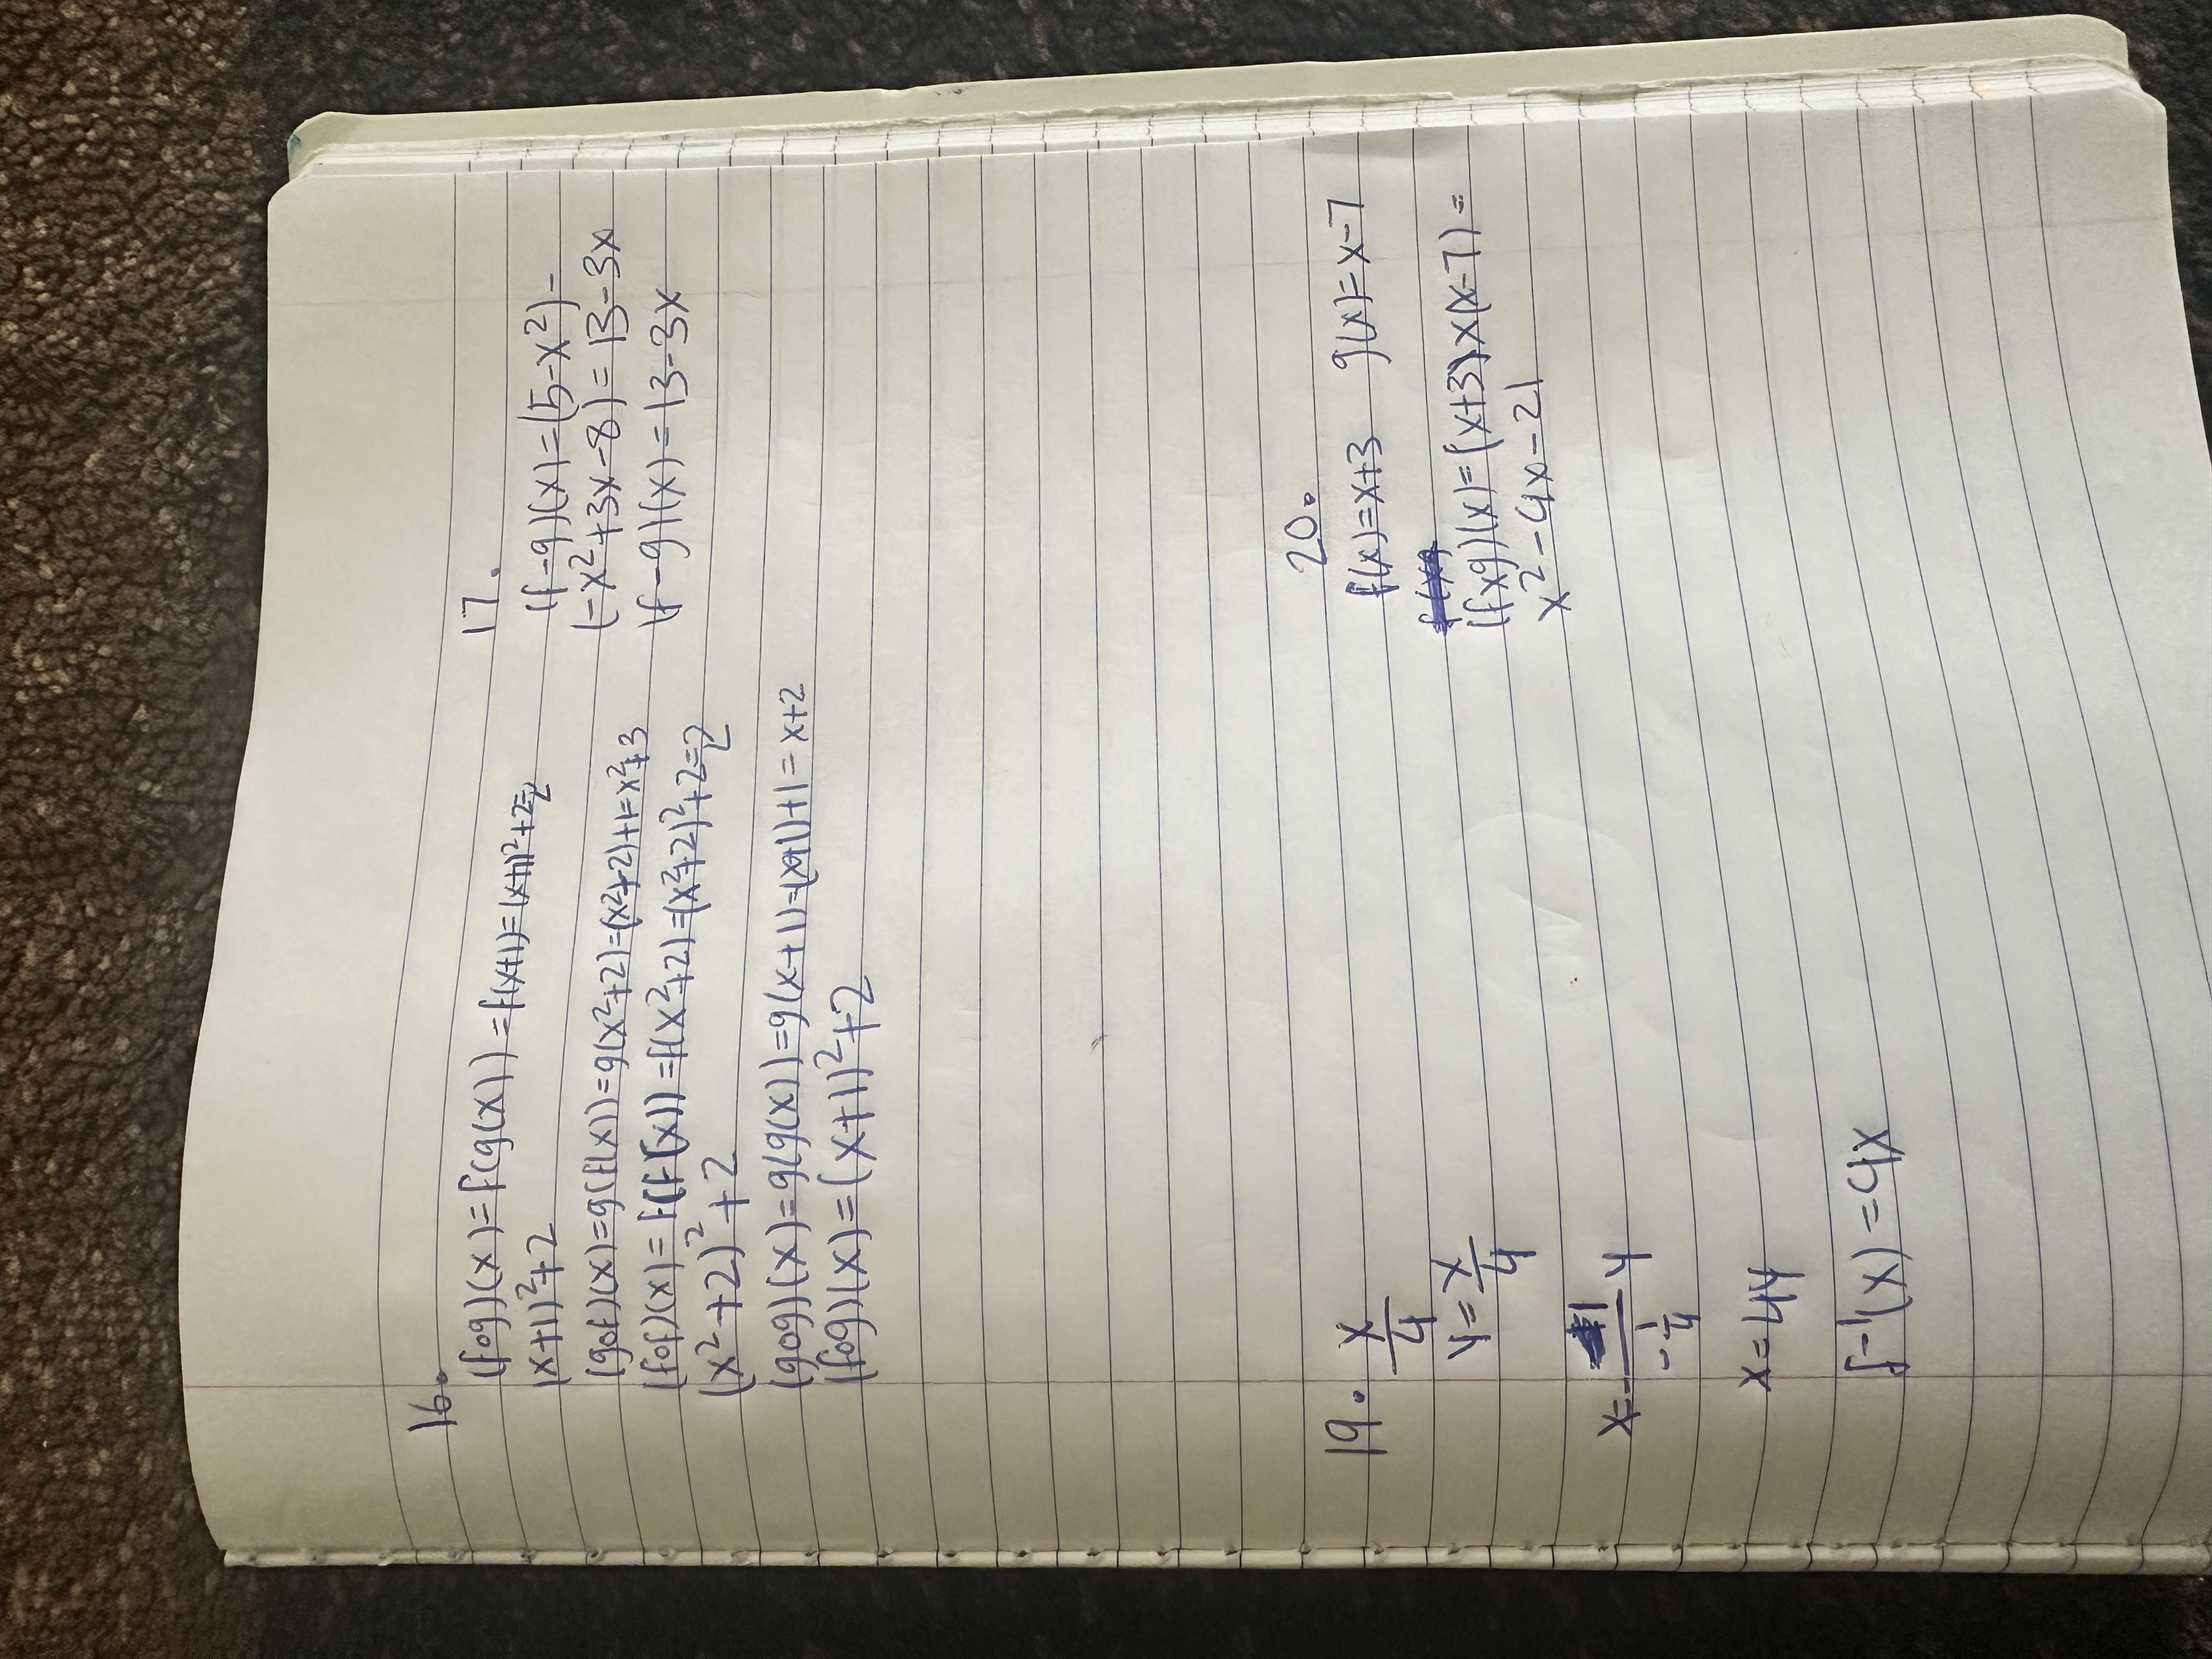 16.
(fog)(x)=f(g(x))=f(x+1)=(x+1)²+2=
(x+1)²+2
(gof)(x)=g(f(x))=g(x²+2)=(x²+2)+1=x²+3
(fof)(x)=f(f(x))=f(x²+2)=(x²+2)²+2=
(x²+2)²+2
(gog)(x)=g(g(x))=g(x+1)=(x+1)+1=x+2
(fog)(x)=(x+1)²+2
17.
(f-g)(x)=(5-x²)-
(-x²+3x-8)=13-3x
(f-g)(x)=13-3x
19. x/4
y=x/4
x=-1/-1/4 y
x=4y
f⁻¹(x)=4x
20.
f(x)=x+3 g(x)=x-7
(fxg)(x)=(x+3)x(x-7)=
x²-4x-21